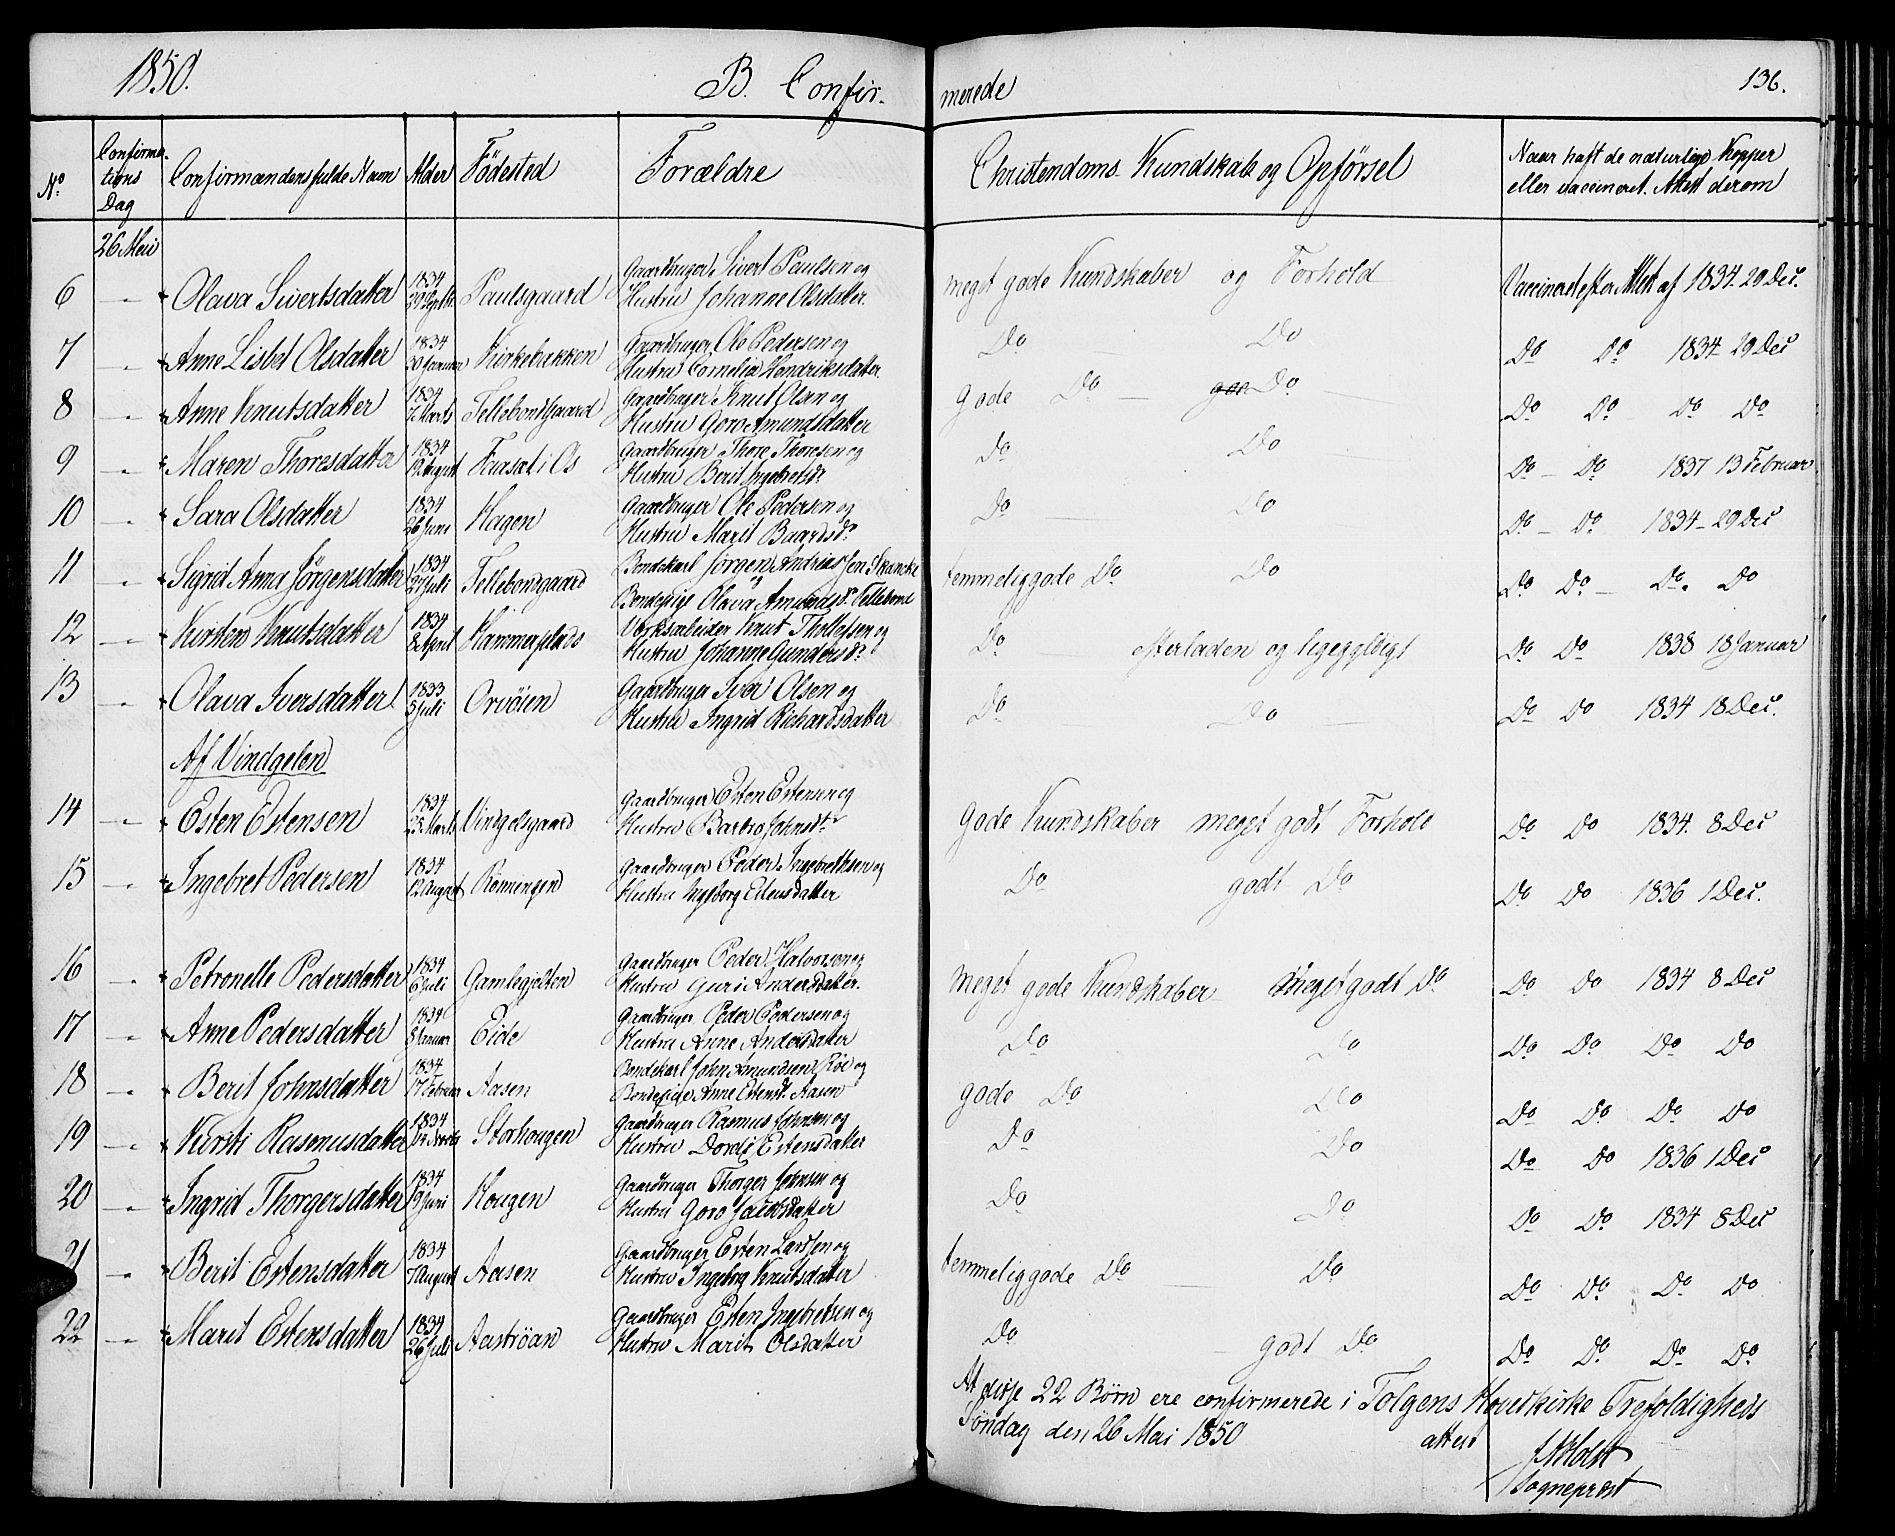 1850.
B. Confir-
merede
136.
No
Confirma-
tions
Dag
Confirmandens fulde Navn
Alder
Födested
Forældre
Christendoms Kundskab og Opførsel
Naar haft de naturlige Kopper
eller vaccineret. Attest derom
26 Mai
6 " Olava Sivertsdatter 1834 Paulsgaard Gaardbruger Sivert Paulsen og
Hustru Johanne Olsdatter meget gode Kundskaber og Forhold Vaccineret efter Attest af 1834. 29 Dec.
7 " Anne Lisbet Olsdatter 1834 20 Januar Kirkebakken Gaardbruger Ole Pedersen og
Hustru Cornelia Hendriksdatter Do Do Do Do 1834 29 Dec
8 " Anne Knutsdatter 1834 7 Marts Tellebondgaard Gaardbruger Knut Olsen og
Hustru Goro Amundsdatter gode Do Do Do Do Do Do
9 " Maren Thoresdatter 1834 August Faaset i Os Gaardbruger Thore Thoresen og
Hustru Berit Ingebretsd. Do Do Do Do 1837 13 Februar
10 " Sara Olsdatter 1834 26 Juni Hagen Gaardbruger Ole Pedersen og
Hustru Marit Baardsd. Do Do Do Do 1834 29 Dec
11 " Sigrid Anna Jörgensdatter 1834 Juli Tellebondgaard Bondekarl Jörgen Andreas Jensen Skancke
og
Bondepige Olava Amundsd. Tellebond temmelig gode Do Do Do Do Do. Do
12 " Kirsten Knutsdatter 1834 8 April Hammerplads Verksarbeider Knut Thollefsen og
Hustru Johanne Gundersd. Do efterladen og ligegyldigt Do Do 1838 18 Januar
13 " Olava Iversdatter 1833 5 Juli Orvöien Gaardbruger Iver Olsen og
Hustru Ingrid Richardsdatter Do Do Do Do 1834 18 Dec.
Af Vindgelen
14 " Esten Estensen 1834 25 Marts Vingelsgaard Gaardbruger Esten Estensen og
Hustru Barbro Johnsdr Gode Kundskaber meget godt Forhold Do Do 1834. 8 Dec
15 " Ingebret Pedersen 1834 12 August Rönningen Gaardbruger Peder Ingebretsen og
Hustru Ingeborg Estensdatter Do godt Do Do Do 1836 1 Dec.
16 " Petronelle Pedersdatter 1834 6 Juli Gamlegjelten Gaardbruger Peder Halvorsen og
Hustru Guri Andersdatter. Meget gode Kundskaber Meget godt Do Do Do 1834 8 Dec
17 " Anne Pedersdatter 1834 8 Januar Eide Gaardbruger Peder Pedersen og
Hustru Anne Andersdatter Do Do Do Do Do Do
18 " Berit Johnsdatter 1834 17 Februar Aasen Bondekarl John Amundsen Röe og
Bondepige Anne Estensd. Aasen gode Do Do Do Do Do Do
19 " Kirsti Rasmusdatter 1834 14 Storhougen Gaardbruger Rasmus Johnsen og
Hustru Dordi Estensdatter Do Do Do Do 1836 1 Dec
20 " Ingrid Thorgersdatter 1834 9 Juni Hougen Gaardbruger Thorger Johnsen og
Hustru Goro Jacobsdatter Do Do Do Do 1834 8 Dec
21 " Berit Estensdatter 1834 7 August Aasen Gaardbruger Esten Larssen og
Hustru Ingeborg Knutsdatter temmelig gode Do Do Do Do Do Do
22 " Marit Estensdatter 1834 26 Juli Aaströan Gaardbruger Esten Ingebretsen og
Hustru Marit Olsdatter Do godt Do Do Do Do Do
At disse 22 Børn ere confirmerede i Tolgens Hovedkirke Trefoldigheds
Söndag den 26 Mai 1850 attest
Holst
Sogneprest